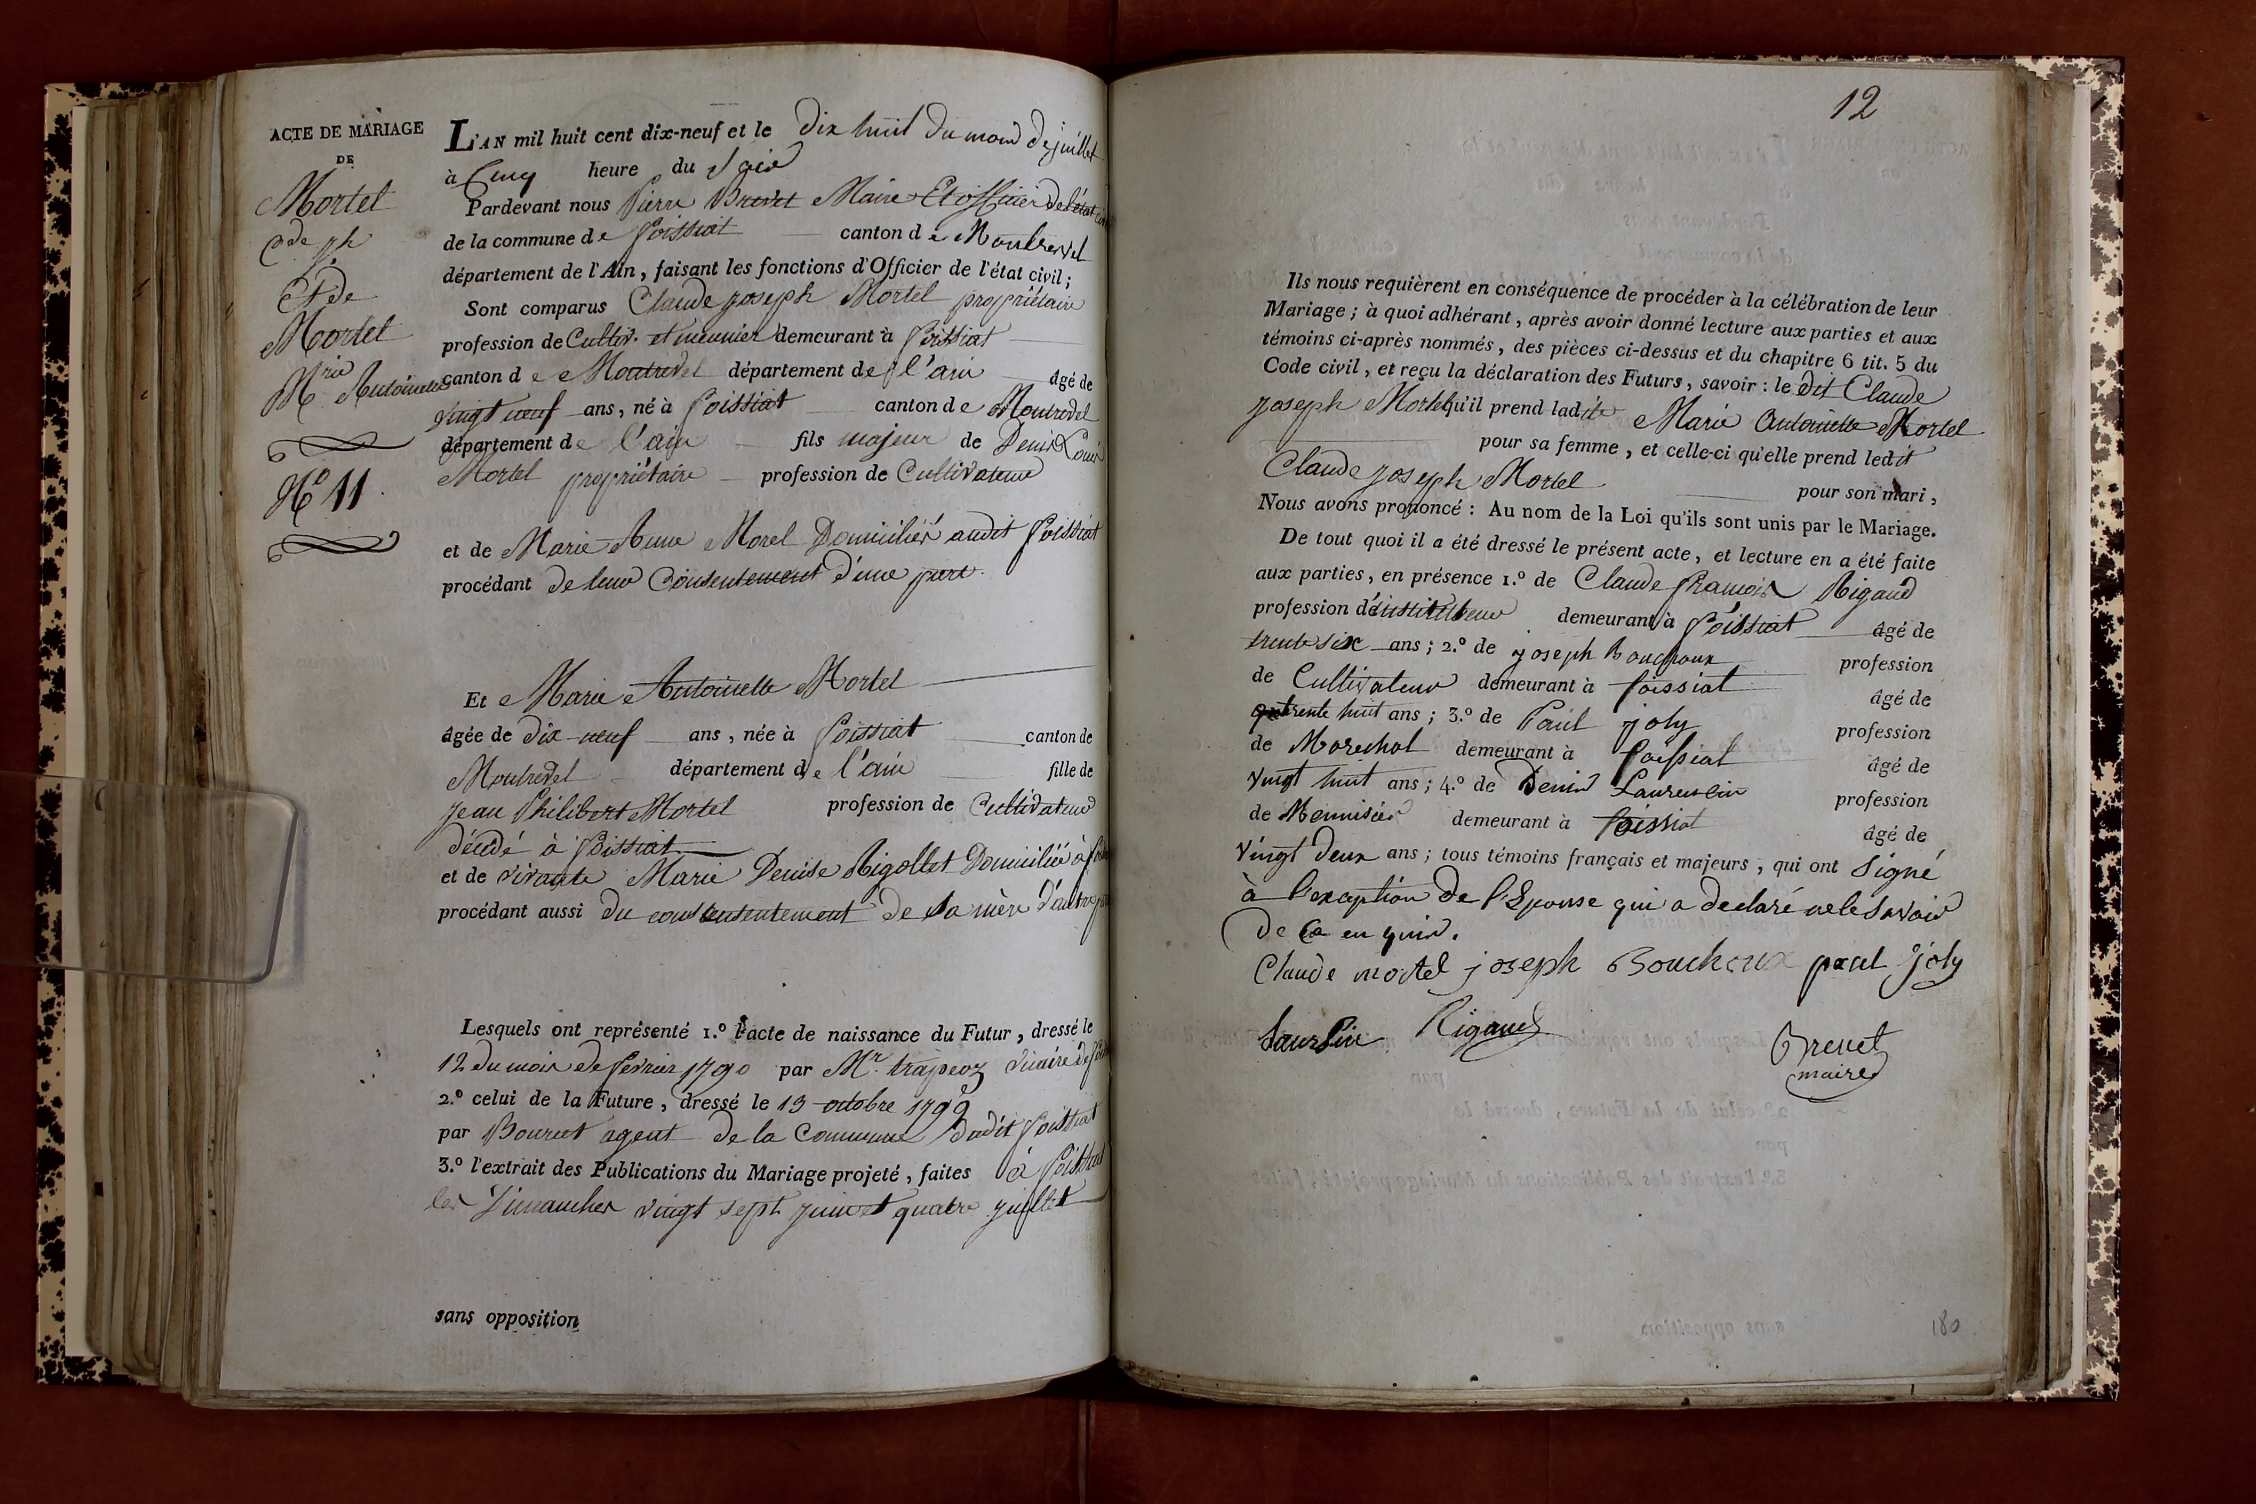 ACTE DE MARIAGE
DE
Mortel
Cde jh
Et de
Mortel
Mrie Antoinette
N° 11
L'AN mil huit cent dix-neuf et le dix huit du mois de juillet
à Cinq heure du Soir
Pardevant nous Pierre Brevet Maire Et officier de l'état civil
de la commune de foissiat canton de Montrevel
département de l'Ain, faisant les fonctions d'Officier de l'état civil;
Sont comparus Claude joseph Mortel propriétaire
profession de Cultiv. et meunier demeurant à foissiat
canton de Montrevel département de l'ain âgé de
vingt neuf ans, né à foissiat canton de Montrevel
département de l'ain fils majeur de Denis Louis
Mortel propriétaire profession de Cultivateur
et de Marie Anne Morel Domiciliés audit foissiat
procédant de leur Consentement d'une part.
Et Marie Antoinette Mortel
âgée de dix-neuf ans, née à foissiat canton de
Montrevel département de l'ain fille de
jean Philibert Mortel profession de Cultivateur
décédé à foissiat
et de vivante Marie Denise Rigollet Domiciliée à
procédant aussi du consentement de sa mère d'autre part
Lesquels ont représenté 1.º l'acte de naissance du Futur, dressé le
12 du mois de fevrier 1790 par Mr. trapeoz vicaire de
2.º celui de la Future, dressé le 13 octobre 1799
par Bouret agent de la Commune dudit foissiat
3.º l'extrait des Publications du Mariage projeté, faites à foissiat
les Dimanches vingt sept juin et quatre juillet
sans opposition
12
Ils nous requièrent en conséquence de procéder à la célébration de leur
Mariage; à quoi adhérant, après avoir donné lecture aux parties et aux
témoins ci-après nommés, des pièces ci-dessus et du chapitre 6 tit. 5 du
Code civil, et reçu la déclaration des Futurs, savoir: le dit Claude
joseph Mortel qu'il prend ladite Marie Antoinette Mortel
pour sa femme, et celle-ci qu'elle prend ledit
Claude joseph Mortel pour son mari,
Nous avons prononcé: Au nom de la Loi qu'ils sont unis par le Mariage.
De tout quoi il a été dressé le présent acte, et lecture en a été faite
aux parties, en présence 1.º de Claude francois Rigaud
profession d'instituteur demeurant à foissiat âgé de
trente six ans; 2.º de joseph Bouchoux profession
de Cultivateur demeurant à foissiat âgé de
trente huit ans; 3.º de Paul joly profession
de Marechal demeurant à foissiat âgé de
vingt huit ans; 4.º de Denis Laurencin profession
de Menuisier demeurant à foissiat âgé de
vingt deux ans; tous témoins français et majeurs, qui ont signé
à l'exception de l'Epouse qui a declaré ne le savoir
de ce enquis.
Claude mortel joseph Bouchoux paul joly
Rigaud
Brevet
maire
180